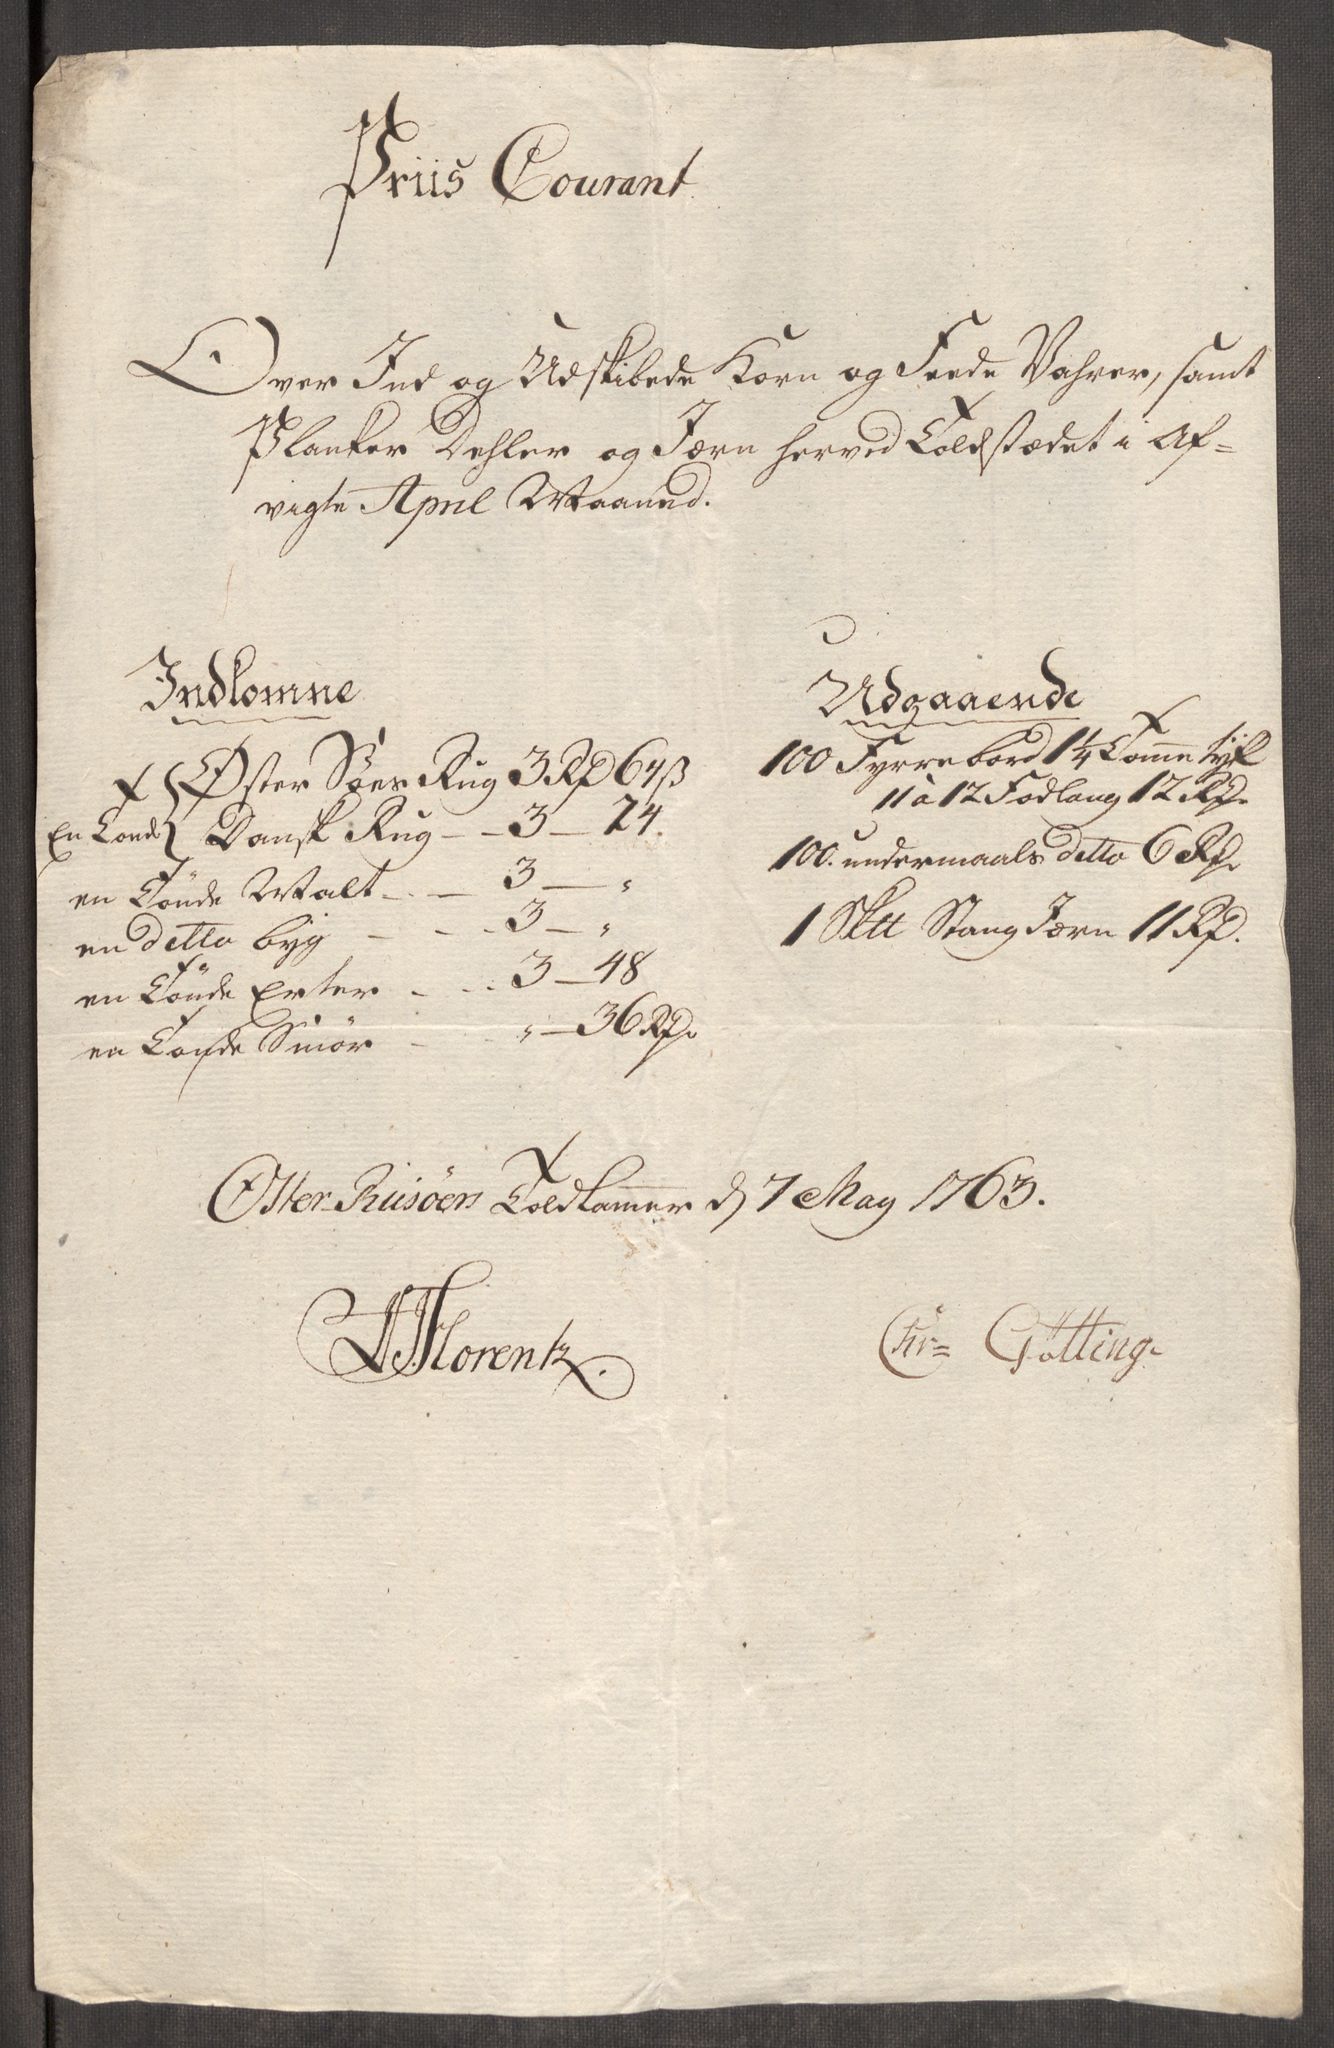 Priis Courant
Over Ind og Udskibede Korn og Feede Vahrer, samt
Planker Dehler og Jærn herved Toldstædet i Af=
vigte April Maaned.
Indkomne
En Tønde { Øster Søes Rug 3 Rd 64 ß
Dansk Rug - - 3 - 24.
en Tönde Malt - - - 3 - "
en detto byg - - - 3 - "
en Tönde Erter - - - 3 - 48
en Tønde Smör - - " - 36 Rd.
Udgaaende
100 Fyrrebord 1 1/4 Tomme tÿk
11 a 12 Fod lang 12 Rd.
100. undermaals detto 6 Rd.
1 Sk℔ Stang Jærn 11 Rd.
Öster-Riisöers Toldkammer d. 7 May 1763.
Florentz.
Chr= Götting.